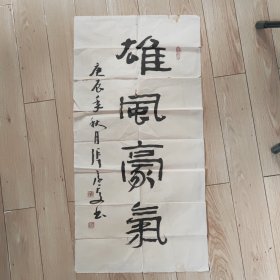 雄風豪氣
庚辰年秋月張
書